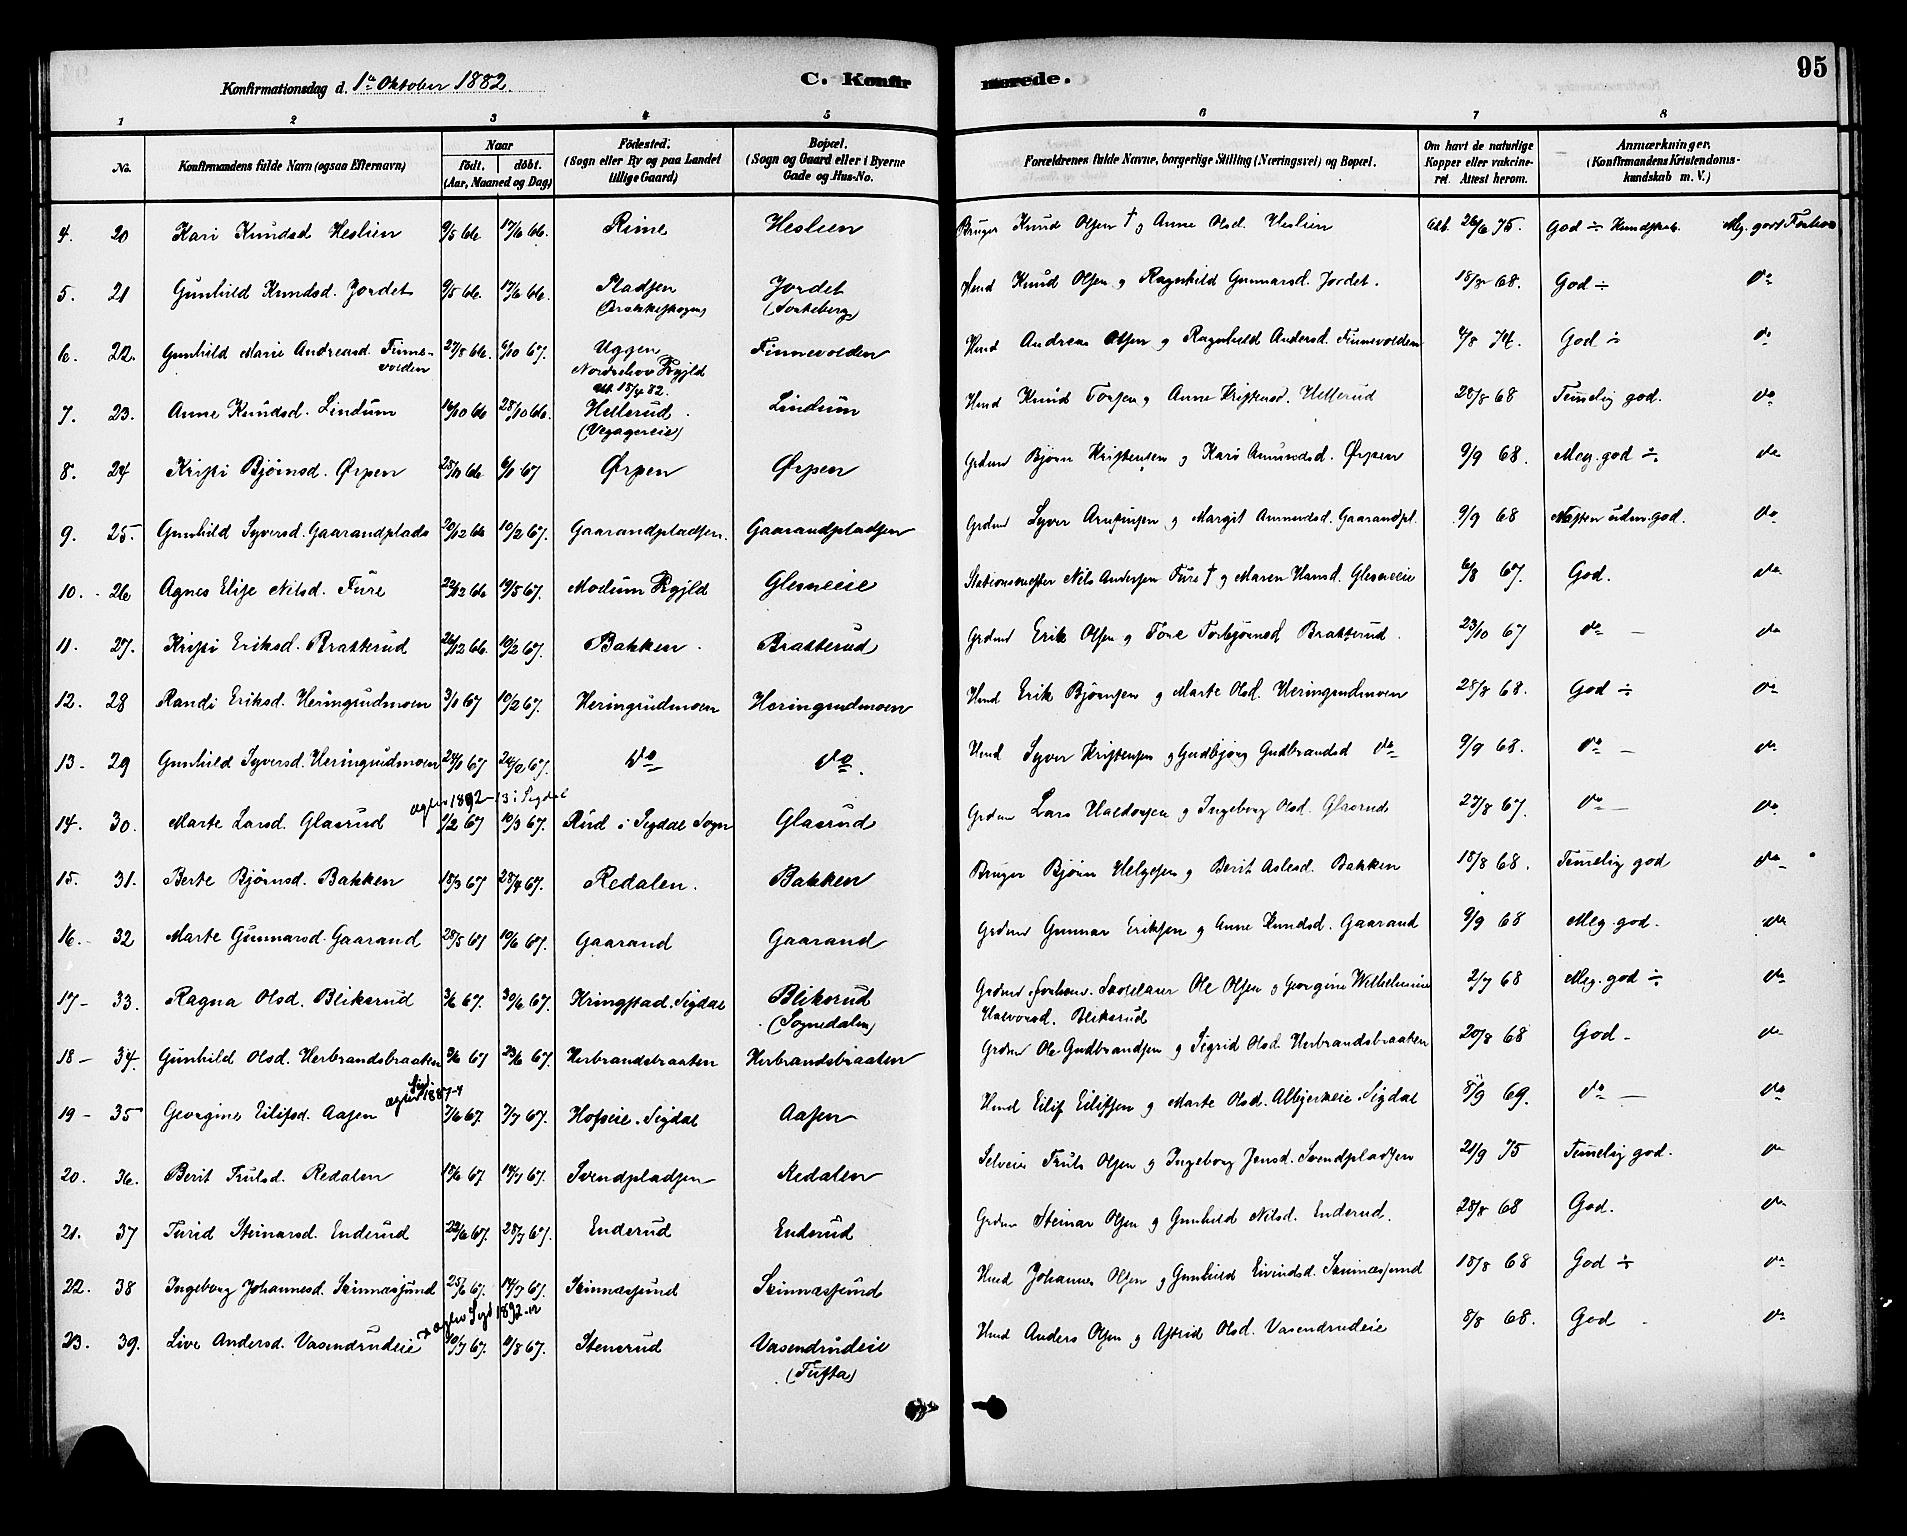 Konfirmationsdag d. 1ste Oktober 1882. C. Konfirmerede. 95
1 2 3 4 5 6 7 8
No. Konfirmandens fulde Navn (ogsaa Efternavn) Naar født. døbt. (Aar, Maaned og Dag) Fødested. (Sogn eller By og paa Landet tillige Gaard) Bopæl. (Sogn og Gaard eller i Byerne Gade og Hus-No. Forældrenes fulde Navne, borgerlige Stilling (Næringsvei) og Bopæl. Om havt de naturlige Kopper eller vakcineret. Attest herom. Anmærkninger. (Konfirmandens Kristendomskundskab m. V.)
4. 20 Kari Knudsd Heslien 9/5 66 17/6 66. Rime Heslien Bruger Knud Olsen † og Anne Olsd. Heslien Att. 26/6 75. God ÷ Kundskab. Meg. god Forhold
5. 21 Gunhild Knudsd. Jordet 9/5 66. 17/6 66. Pladsen Jordet Hmd Knud Olsen og Ragnhild Gunnarsd. Jordet. 18/8 68. God ÷ do
6. 22. Gunhild Marie Andreasd. Finnevolden 27/8 66. 6/10 67. Uggen Nordrehov Prgjld Att 15/4 82. Finnevolden Hmd Andreas Olsen og Ragnhild Andersd. Finnevolden 4/8 74. God ÷ do
7. 23. Anne Knudsd. Lindum 16/10 66 28/10 66. Hellerud (Vegagereie) Lindum Hmd Knud Torsen og Anne Kristensd. Hellerud 28/8 68 Temelig god. do
8. 24 Kristi Bjørnsd. Ørpen 25/11 66. 6/1 67 Ørpen Ørpen Grdmd Bjørn Kristensen og Kari Amundsd. Ørpen 9/9 68. Meg. god ÷ do
9. 25 Gunhild Syversd. Gaarandplads 20/12 66 10/2 67. Gaarandpladsen. Gaarandpladsen Grdmd Syver Arnfinsen og Margit Ammundsd. Gaarandpl. 9/9 68 Næsten udm. god. do
10. 26 Agnes Elise Nilsd. Fure 22/12 66 19/5 67. Modum Prgjld Glesneeie Stationsmester Nils Andersen Fure † og Maren Hansd. Glesneeie 6/8 67. God. do
11. 27. Kristi Eriksd. Bratterud 26/12 66. 10/2 67. Bakken Bratterud Grdmd Erik Olsen og Tore Torbjørnsd Bratterud. 23/10 67 do — do
12. 28 Randi Eriksd. Heringrudmoen 3/1 67 10/2 67. Heringrudmoen Heringrudmoen Hmd Erik Bjørnsen og Marte Olsd. Heringrudmoen 28/8 68. God ÷ do
13. 29 Gunhild Syversd. Heringrudmoen 24/1 67 24/2 67. do do. Hmd Syver Kristensen og Gudbjørg Gudbrandsd do 9/9 68. do — do
14. 30. Marte Larsd. Glasrud 1/2 67 10/3 67. Rud i Sigdal Sogn Glasrud Grdmd Lars Halvorsen og Ingeborg Olsd. Glasrud 27/8 67. do — do
1892-13 i Sigdal
15. 31. Berte Bjørnsd. Bakken 18/3 67 28/4 67. Redalen. Bakken Bruger Bjørn Helgesen og Berit Aslesd. Bakken 18/8 68. Temelig god do
16. 32 Marte Gunnarsd. Gaarand 28/5 67 10/6 67. Gaarand Gaarand Grdmd Gunnar Eriksen og Anne Knudsd. Gaarand 9/9 68 Meg. god. do
17 33. Ragna Olsd. Bliksrud 3/6 67. 30/6 67. Kringstad. Sigdal Bliksrud (Sognedalen) Grdmd Ole Olsen og Georgine Wilhelmine Halvorsd. Bliksrud 2/7 68 Meg. god ÷ do
18 34. Gunhild Olsd. Herbrandsbraaten 3/6 67 23/6 67. Herbrandsbraaten Herbrandsbraaten Grdmd Ole Gudbrandsen og Sigrid Olsd Herbrandsbraaten 20/8 68 God do
19 35 Georgine Eilifsd. Aasen 7/6 67. 7/7 67. Hofseie. Sigdal Aasen Hmd Eilif Eilifsen og Marte Olsd. Albjerkeie. Sigdal 8/9 69. do — do
20. 36. Berit Trulsd. Redalen 15/6 67 14/7 67. Svendpladsen Redalen Selveier Truls Olsen og Ingeborg Jensd. Svendpladsen 21/9 75 Temelig god. do
21. 37 Turid Steinarsd. Enderud 22/6 67. 28/7 67. Enderud Enderud Grdmd Steinar Olsen og Gunhild Nilsd. Enderud. 28/8 68 God. do
22. 38 Ingeborg Johannesd. Skinnesjund 25/6 67. 14/7 67. Skinnesjund Skinnesjund Hmd Johannes Olsen og Gunhild Eivindsd. Skinnesjund 18/8 68 God ÷ do
23. 39. Live Andersd. Vasendrudeie 10/7 67. 11/8 67. Stenerud Vasendrudeie (Tufta) Hmd Anders Olsen og Astrid Olsd. Vasendrudeie 8/8 68. God do